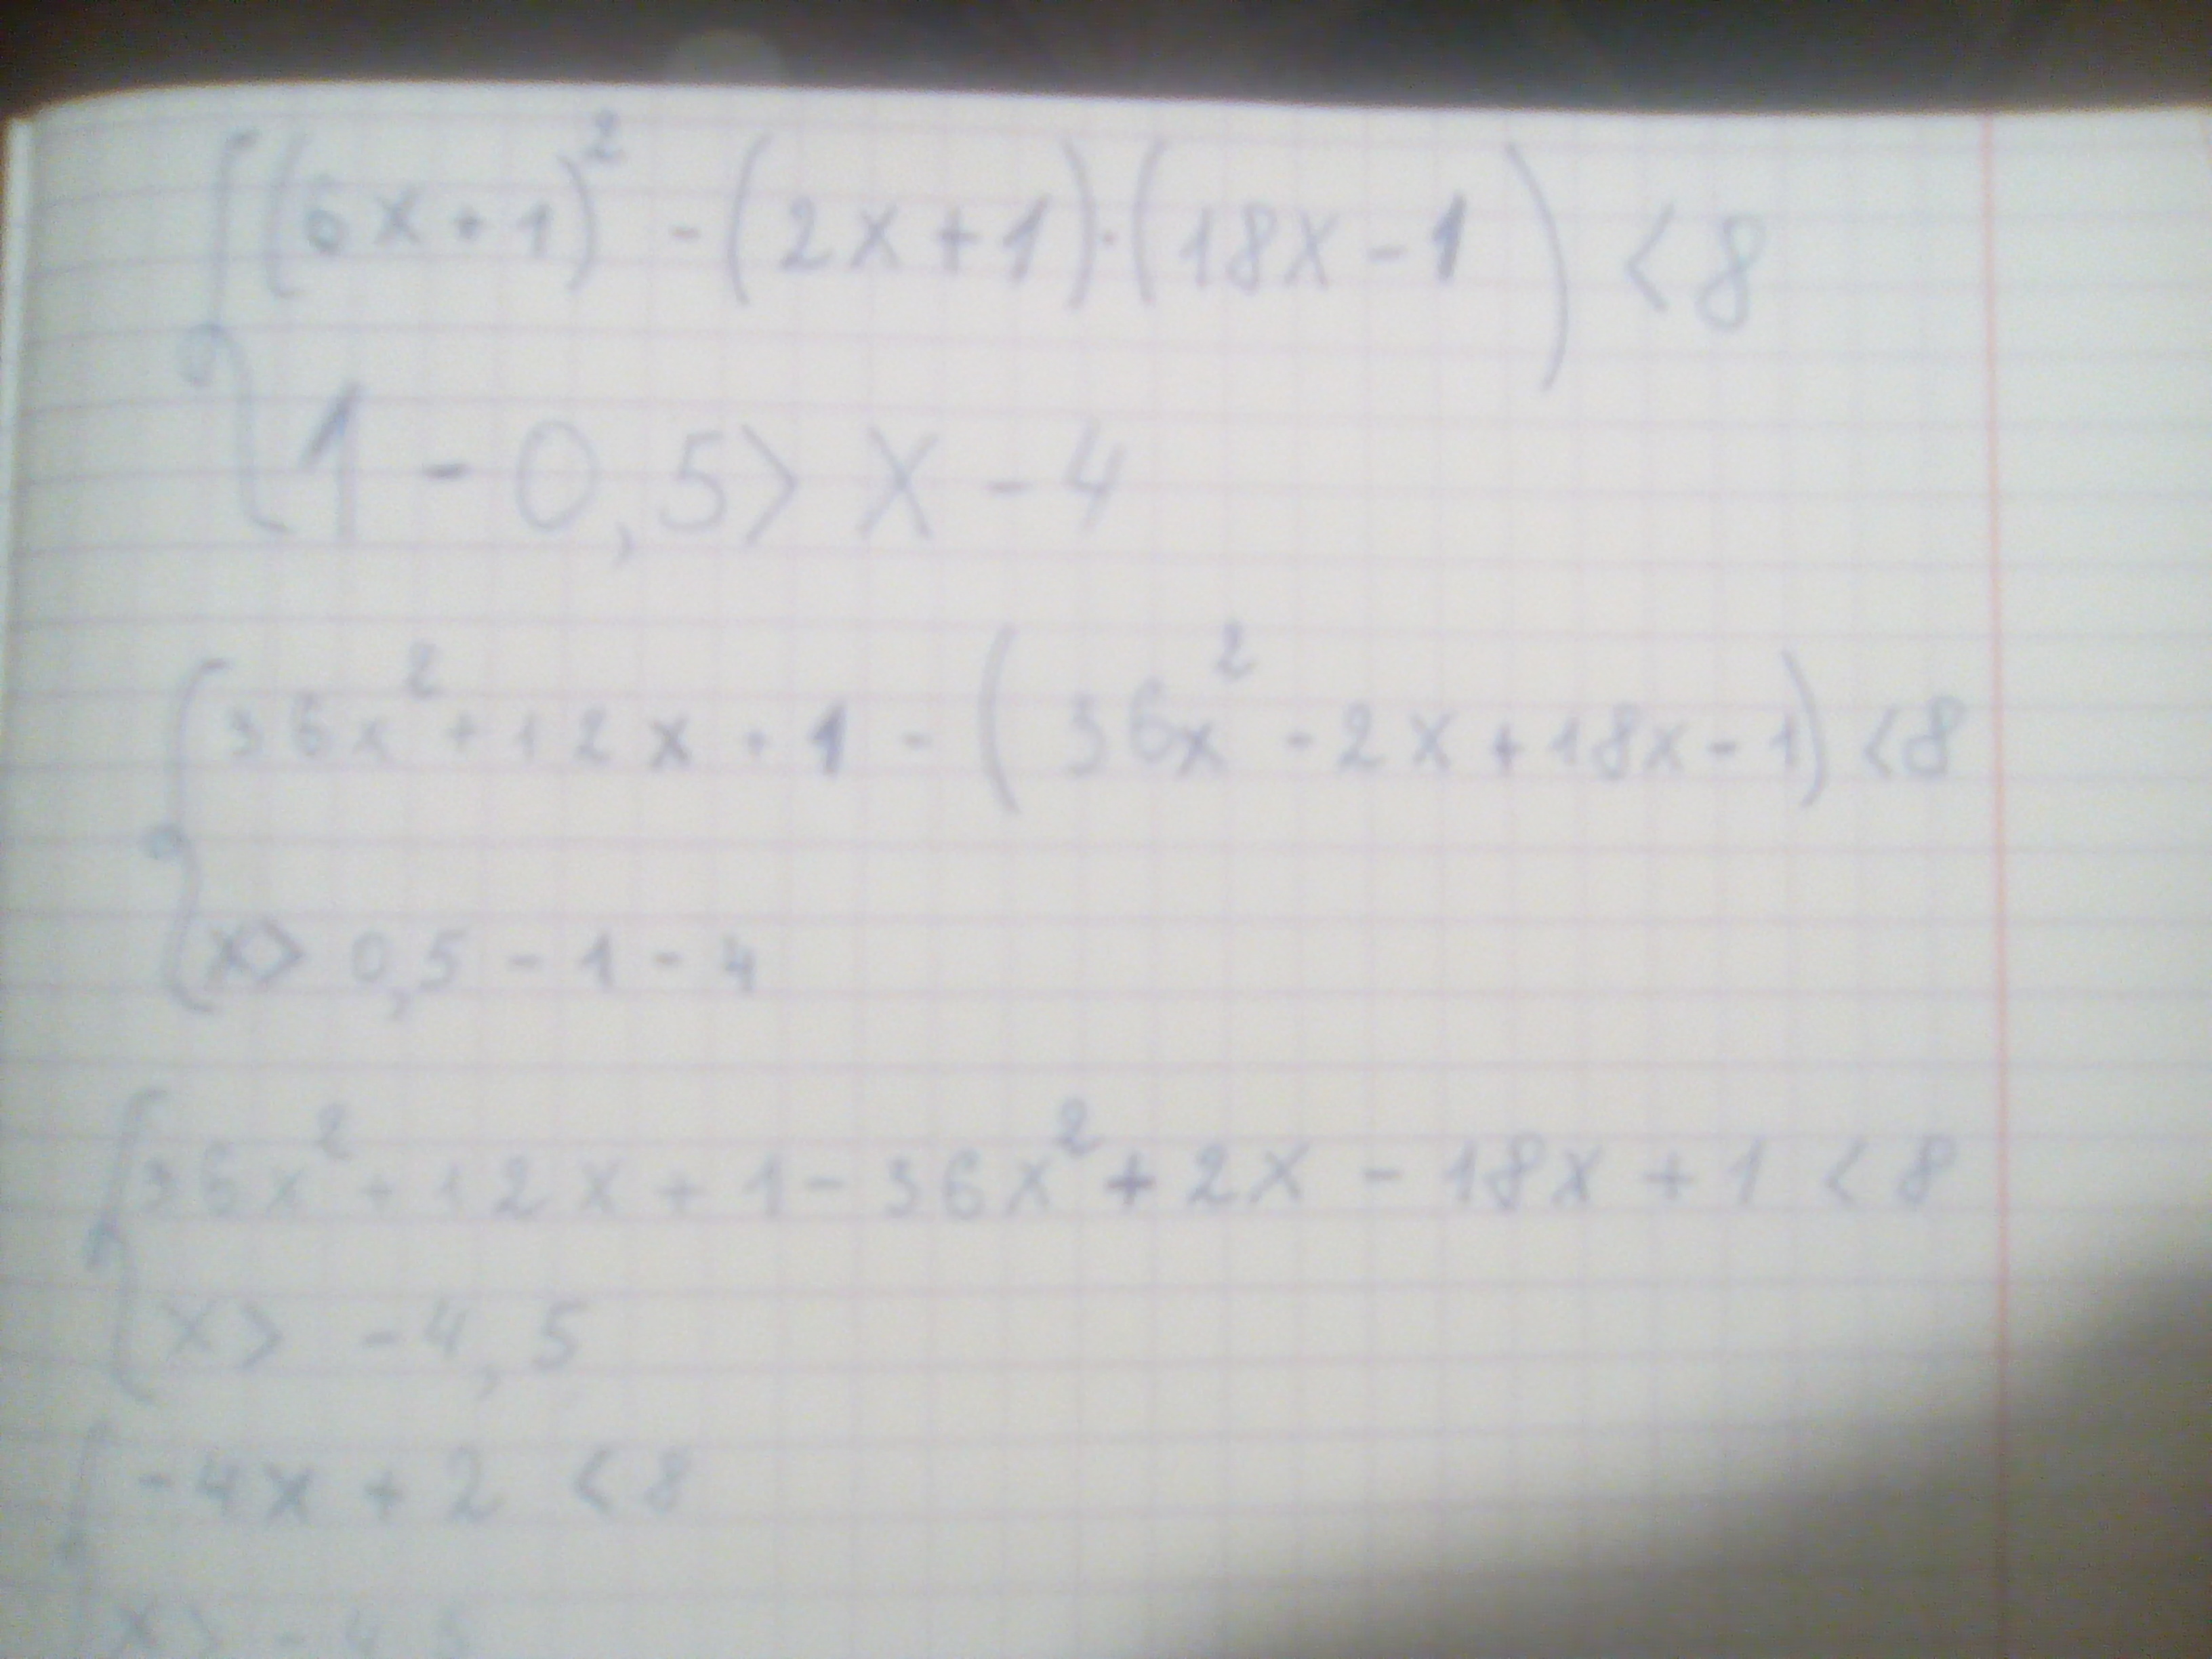 (6x+1)² - (2x+1)·(18x-1) < 8
1 - 0,5 > x - 4
36x² + 12x + 1 - (36x² - 2x + 18x - 1) < 8
x > 0,5 - 1 - 4
36x² + 12x + 1 - 36x² + 2x - 18x + 1 < 8
x > -4,5
-4x + 2 < 8
x > -4,5